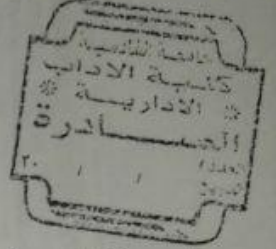 جامعة القادسية
كلية الاداب
الادارية
الصادرة
العدد /
التاريخ / / ٢٠